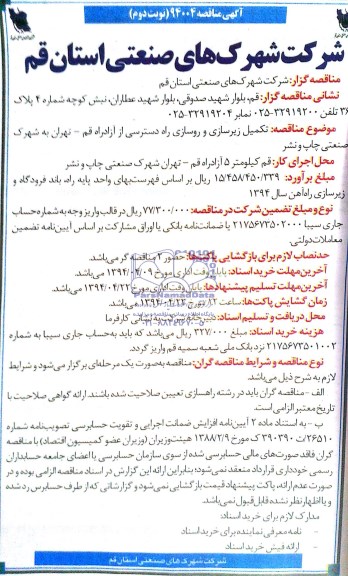 آگهی مناقصه ۹۴۰۰۴ (نوبت دوم)
شرکت شهرک‌های صنعتی استان قم
مناقصه گزار: شرکت شهرک‌های صنعتی استان قم
نشانی مناقصه گزار: قم، بلوار شهید صدوقی، بلوار شهید عطاران، نبش کوچه شماره ۴ پلاک
۳۶ تلفن ۳۲۹۱۹۲۰۰-۰۲۵ نمابر ۳۲۹۱۹۲۰۴-۰۲۵
موضوع مناقصه: تکمیل زیرسازی و روسازی راه دسترسی از آزادراه قم - تهران به شهرک
صنعتی چاپ و نشر
محل اجرای کار: قم کیلومتر ۵ آزادراه قم - تهران شهرک صنعتی چاپ و نشر
مبلغ برآورد: ۱۵/۴۵۸/۴۵۰/۳۳۹ ریال بر اساس فهرست‌بهای واحد پایه راه، باند فرودگاه و
زیرسازی راه‌آهن سال ۱۳۹۴
نوع و مبلغ تضمین شرکت در مناقصه: ۷۷/۳۰۰/۰۰۰ ریال در قالب واریز وجه به شماره حساب
جاری سیبا ۲۱۷۵۶۷۳۵۰۲۰۰۰ یا ضمانت‌نامه بانکی یا اوراق مشارکت بر اساس آیین‌نامه تضمین
معاملات دولتی.
حدنصاب لازم برای بازگشایی پاکت‌ها: حضور ۲ مناقصه گر می‌باشد.
آخرین مهلت خرید اسناد: پایان وقت اداری مورخ ۱۳۹۴/۰۴/۰۹ می‌باشد.
آخرین مهلت تسلیم پیشنهادها: پایان وقت اداری مورخ ۱۳۹۴/۰۴/۲۳ می‌باشد.
زمان گشایش پاکت‌ها: ساعت مورخ ۱۳۹۴/۰۴/۲۴ می‌باشد.
ParsNamadData
محل دریافت و تسلیم اسناد: دبیرخانه شرکت به نشانی کارفرما
هزینه خرید اسناد: مبلغ ۳۲۷/۰۰۰ ریال می‌باشد که باید به حساب جاری سیبا به شماره
۲۱۷۵۶۷۳۵۰۱۰۰۲ نزد بانک ملی شعبه سمیه قم واریز گردد.
نوع مناقصه و شرایط مناقصه گران: مناقصه به‌صورت یک مرحله‌ای برگزار می‌شود و شرایط
لازم به شرح ذیل می‌باشد.
الف - مناقصه گران باید در رشته راهسازی تعیین صلاحیت شده باشند. ارائه گواهی صلاحیت با
تاریخ معتبر الزامی است.
ب - به استناد ماده ۲ آیین‌نامه افزایش ضمانت اجرایی و تقویت حسابرسی تصویب‌نامه شماره
۲۶۵۱۰/ت ۳۹۰۳۹۰ ک مورخ ۱۳۸۸/۲/۹ هیئت‌وزیران (وزیران عضو کمیسیون اقتصاد) با مناقصه
گران فاقد صورت‌های مالی حسابرسی شده از سوی سازمان حسابرسی یا اعضای جامعه حسابداران
رسمی خودداری قرارداد منعقد نمی‌شود؛ بنابراین ارائه این گزارش در اسناد مناقصه الزامی بوده و در
صورت عدم ارائه، پاکت پیشنهاد قیمت بازگشایی نمی‌شود و گزارشاتی که از طرف حسابرس رد شده
و یا اظهارنظر نشده قابل قبول نمی‌باشد.
مدارک لازم برای خرید اسناد
- نامه معرفی نماینده برای خرید اسناد
- ارائه فیش خرید اسناد
شرکت شهرک های صنعتی استان قم